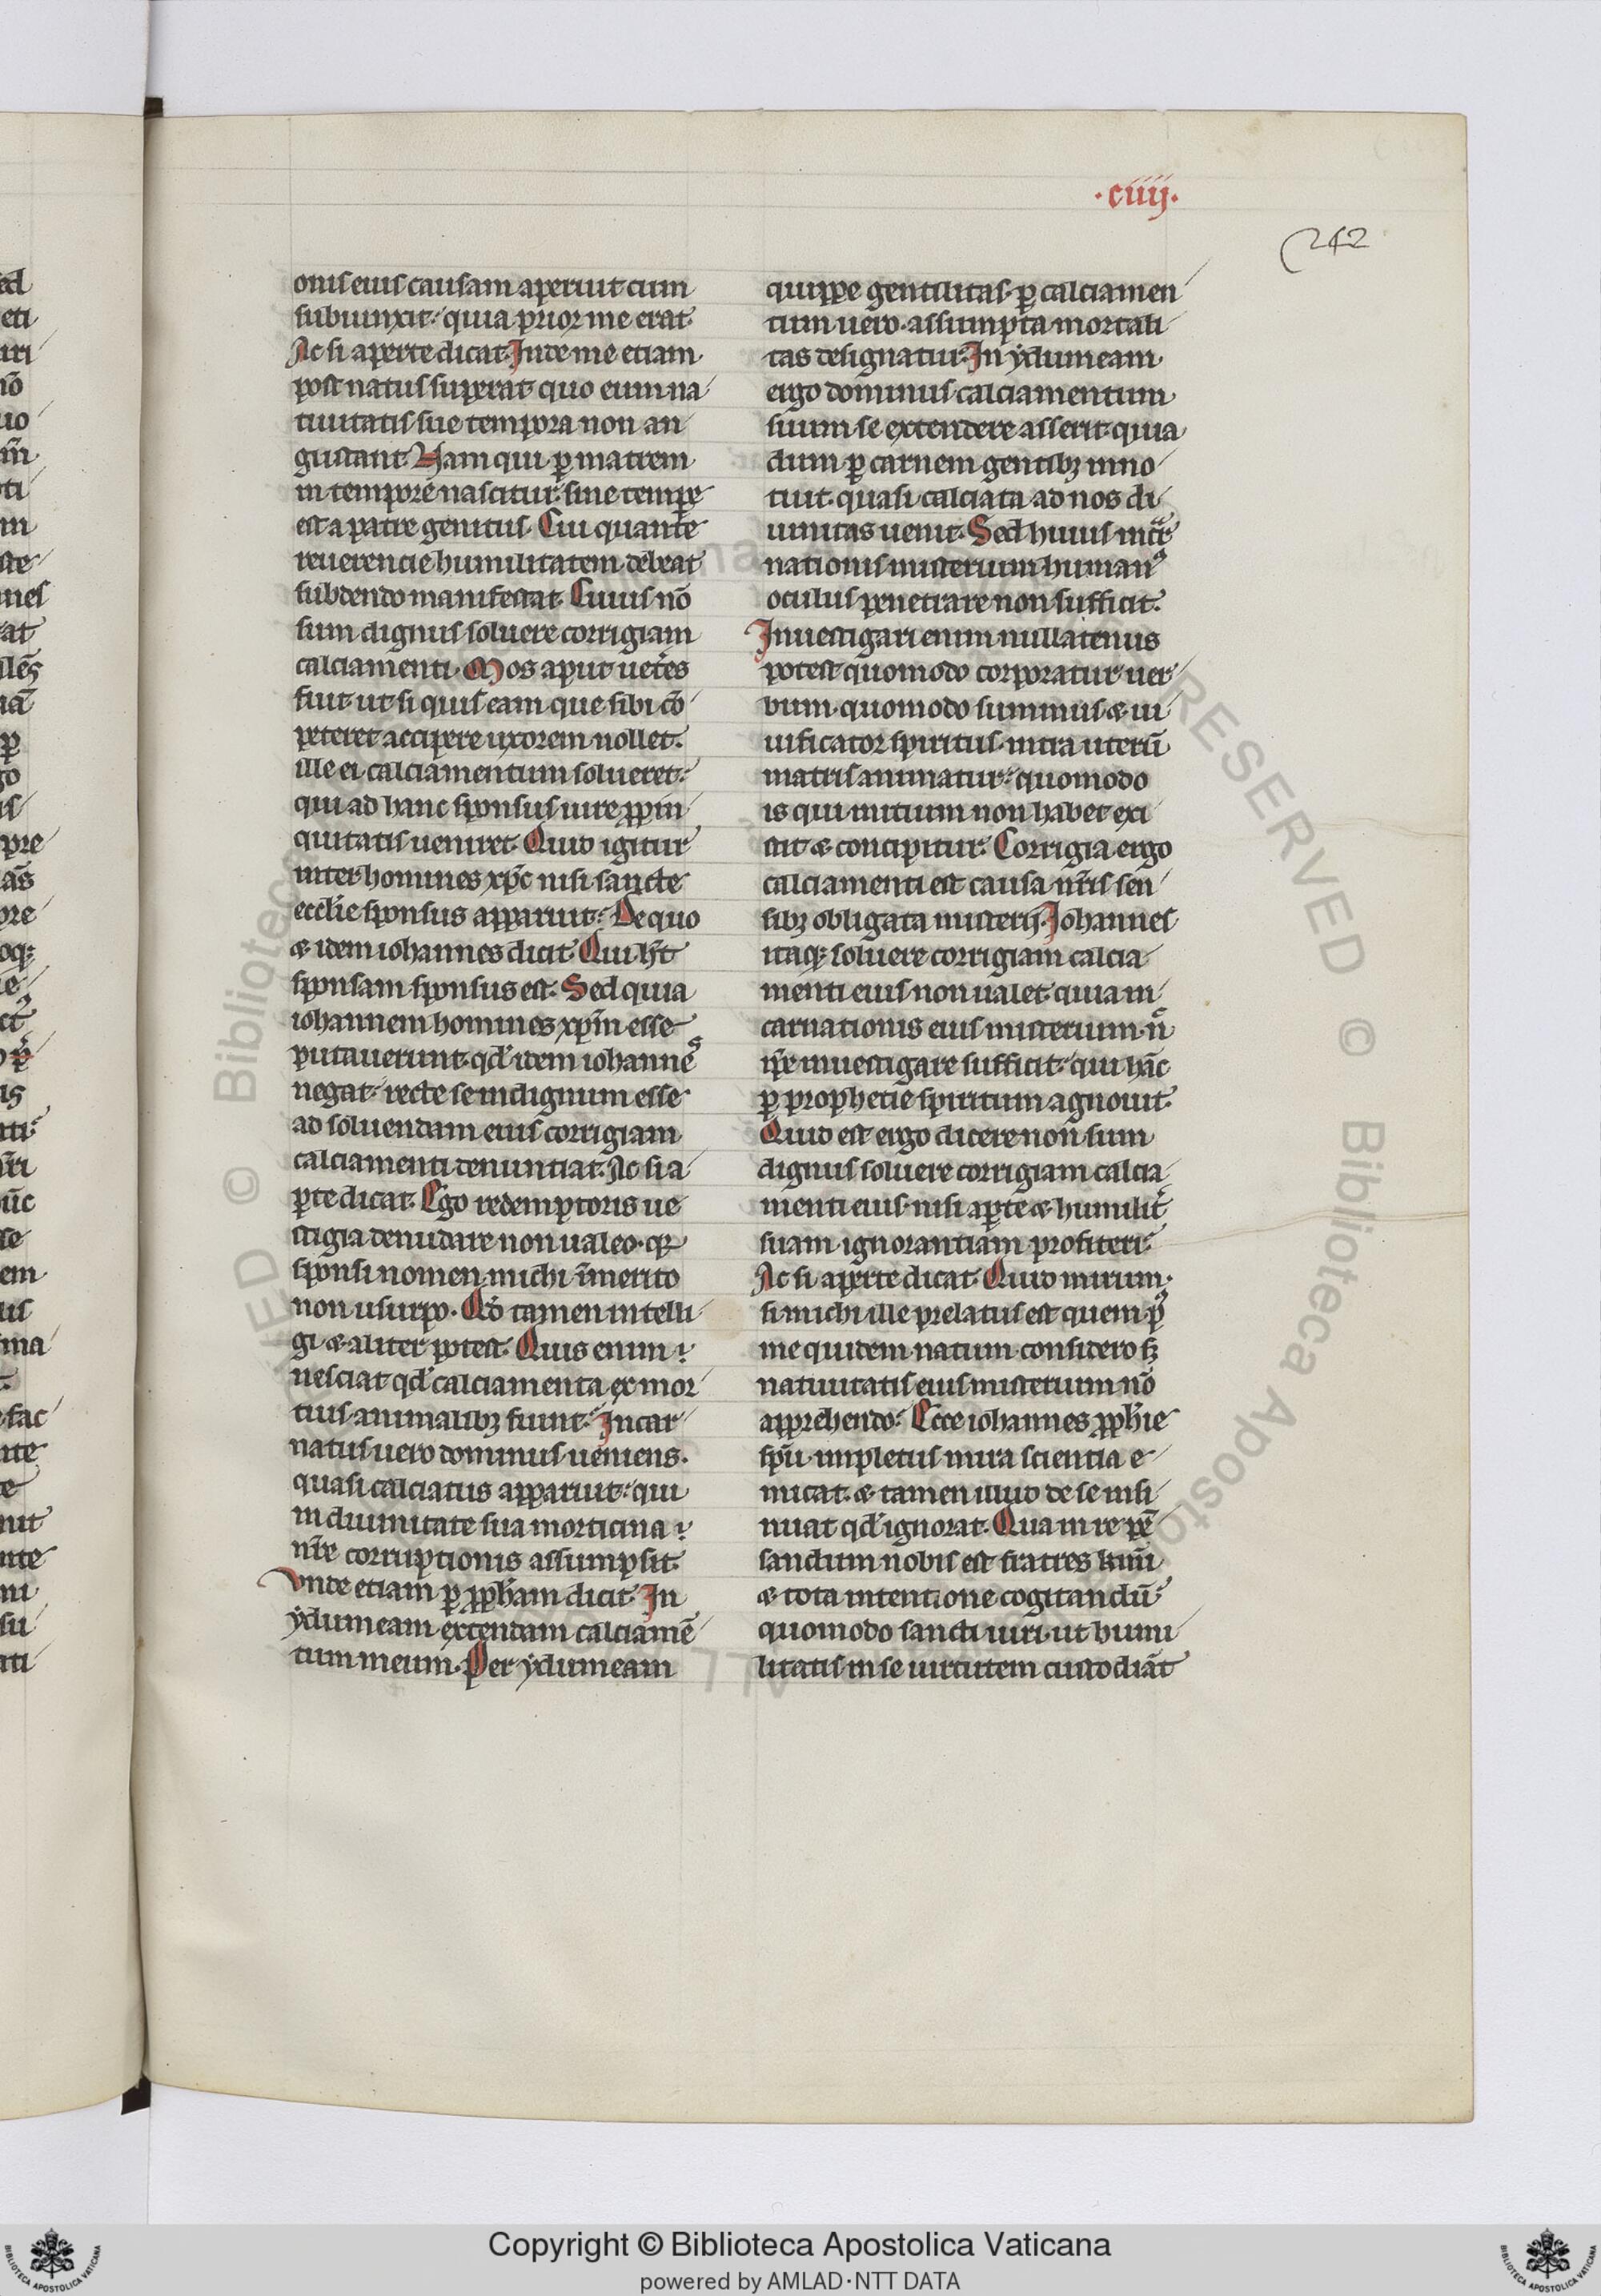 ·ciiij·
242
onis eius causam aperuit cum
subiunxit· quia prior me erat·
Ac si aperte dicat· Inde me etiam
post natus superat quo eum na
tiuitatis sue tempora non an
gustant· Nam qui p̱ matrem
in tempore nascitur· sine tempꝛe
est a patre genitus· Cui quante
reuerencie humilitatem debeat
subdendo manifestat· Cuius nō
sum dignus soluere corrigiam
calciamenti· Mos aput ueteres
fuit ut si quis eam que sibi cō
peteret accipere uxorem nollet·
ille ei calciamentum solueret·
qui ad hanc sponsus iure ꝓpin
quitatis ueniret· Quid igitur
inter homines xp̄c nisi sancte
eccl̄ie sponsus apparuit· De quo
⁊ idem iohannes dicit· Qui h̄t
sponsam sponsus est· Sed quia
iohannem homines xp̄m esse
putauerunt· qd̄ idem iohannes
negat· recte se indignum esse
ad soluendam eius corrigiam
calciamenti denuntiat· Ac si a
ꝑte dicat· Ego redemptoris ue
stigia denudare non ualeo· qꝛ
sponsi nomen michi īmerito
non usurpo· Qd̄ tamen intelli
gi ⁊ aliter potest· Quis enim
nesciat qd̄ calciamenta ex mor
tuis animalibꝫ fiunt· Incar
natus uero dominus ueniens·
quasi calciatus apparuit· qui
in diuinitate sua morticina
nr̄e corruptionis assumpsit·
Vnde etiam ꝑ ꝓph̄am dicit· In
ydumeam extendam calciamē
tum meum· Per ydumeam
quippe gentilitas· ꝑ calciamen
tum uero· assumpta mortali
tas designatur· In ydumeam
ergo dominus calciamentum
suum se extendere asserit· quia
dum ꝑ carnem gentibꝫ inno
tuit· quasi calciata ad nos di
uinitas uenit· Sed huius incar
nationis misterium humanꝰ
oculus penetrare non sufficit·
Inuestigari enim nullatenus
potest quomodo corporatur uer
bum· quomodo summus ⁊ ui
uificator spiritus· intra uterū
matris animatur· quomodo
is qui initium non habet exi
stit ⁊ concipitur· Corrigia ergo
calciamenti est causa nr̄is sen
sibꝫ obligata misterij· Johannes
itaqꝫ soluere corrigiam calcia
menti eius non ualet· quia in
carnationis eius misterium· n̊
ip̄e inuestigare sufficit· qui hāc
ꝑ prophetie spiritum agnouit·
Quid est ergo dicere non sum
dignus soluere corrigiam calcia
menti eius· nisi aꝑte ⁊ humilit̄
suam ignorantiam profiteri·
Ac si aperte dicat· Quid mirum·
si michi ille prelatus est quem pꝰ
me quidem natum considero sꝫ
natiuitatis eius misterium nō
apprehendo· Ecce iohannes ꝓph̄ie
sp̄u impletus mira scientia e
micat· ⁊ tamen illud de se insi
nuat qd̄ ignorat· Qua in re pē
sandum nobis est fratres km̄i
⁊ tota intentione cogitandū·
quomodo sancti uiri· ut humi
litatis in se uirtutem custodiāt
Copyright © Biblioteca Apostolica Vaticana
powered by AMLAD·NTT DATA